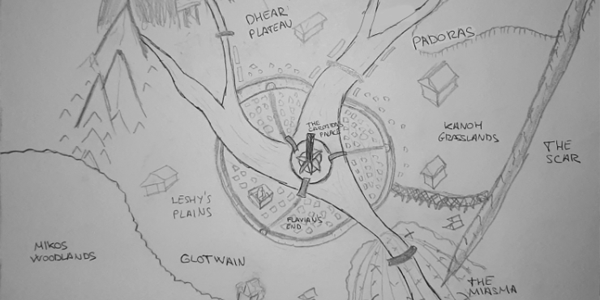 DHEAR
PLATEAU
PADORAS
THE
PALACE
KANOH
GRASSLANDS
THE
SCAR
LESHY'S
PLAINS
FLAVIAN'S
END
MIKOS
WOODLANDS
GLOTWAIN
THE
MIASMA